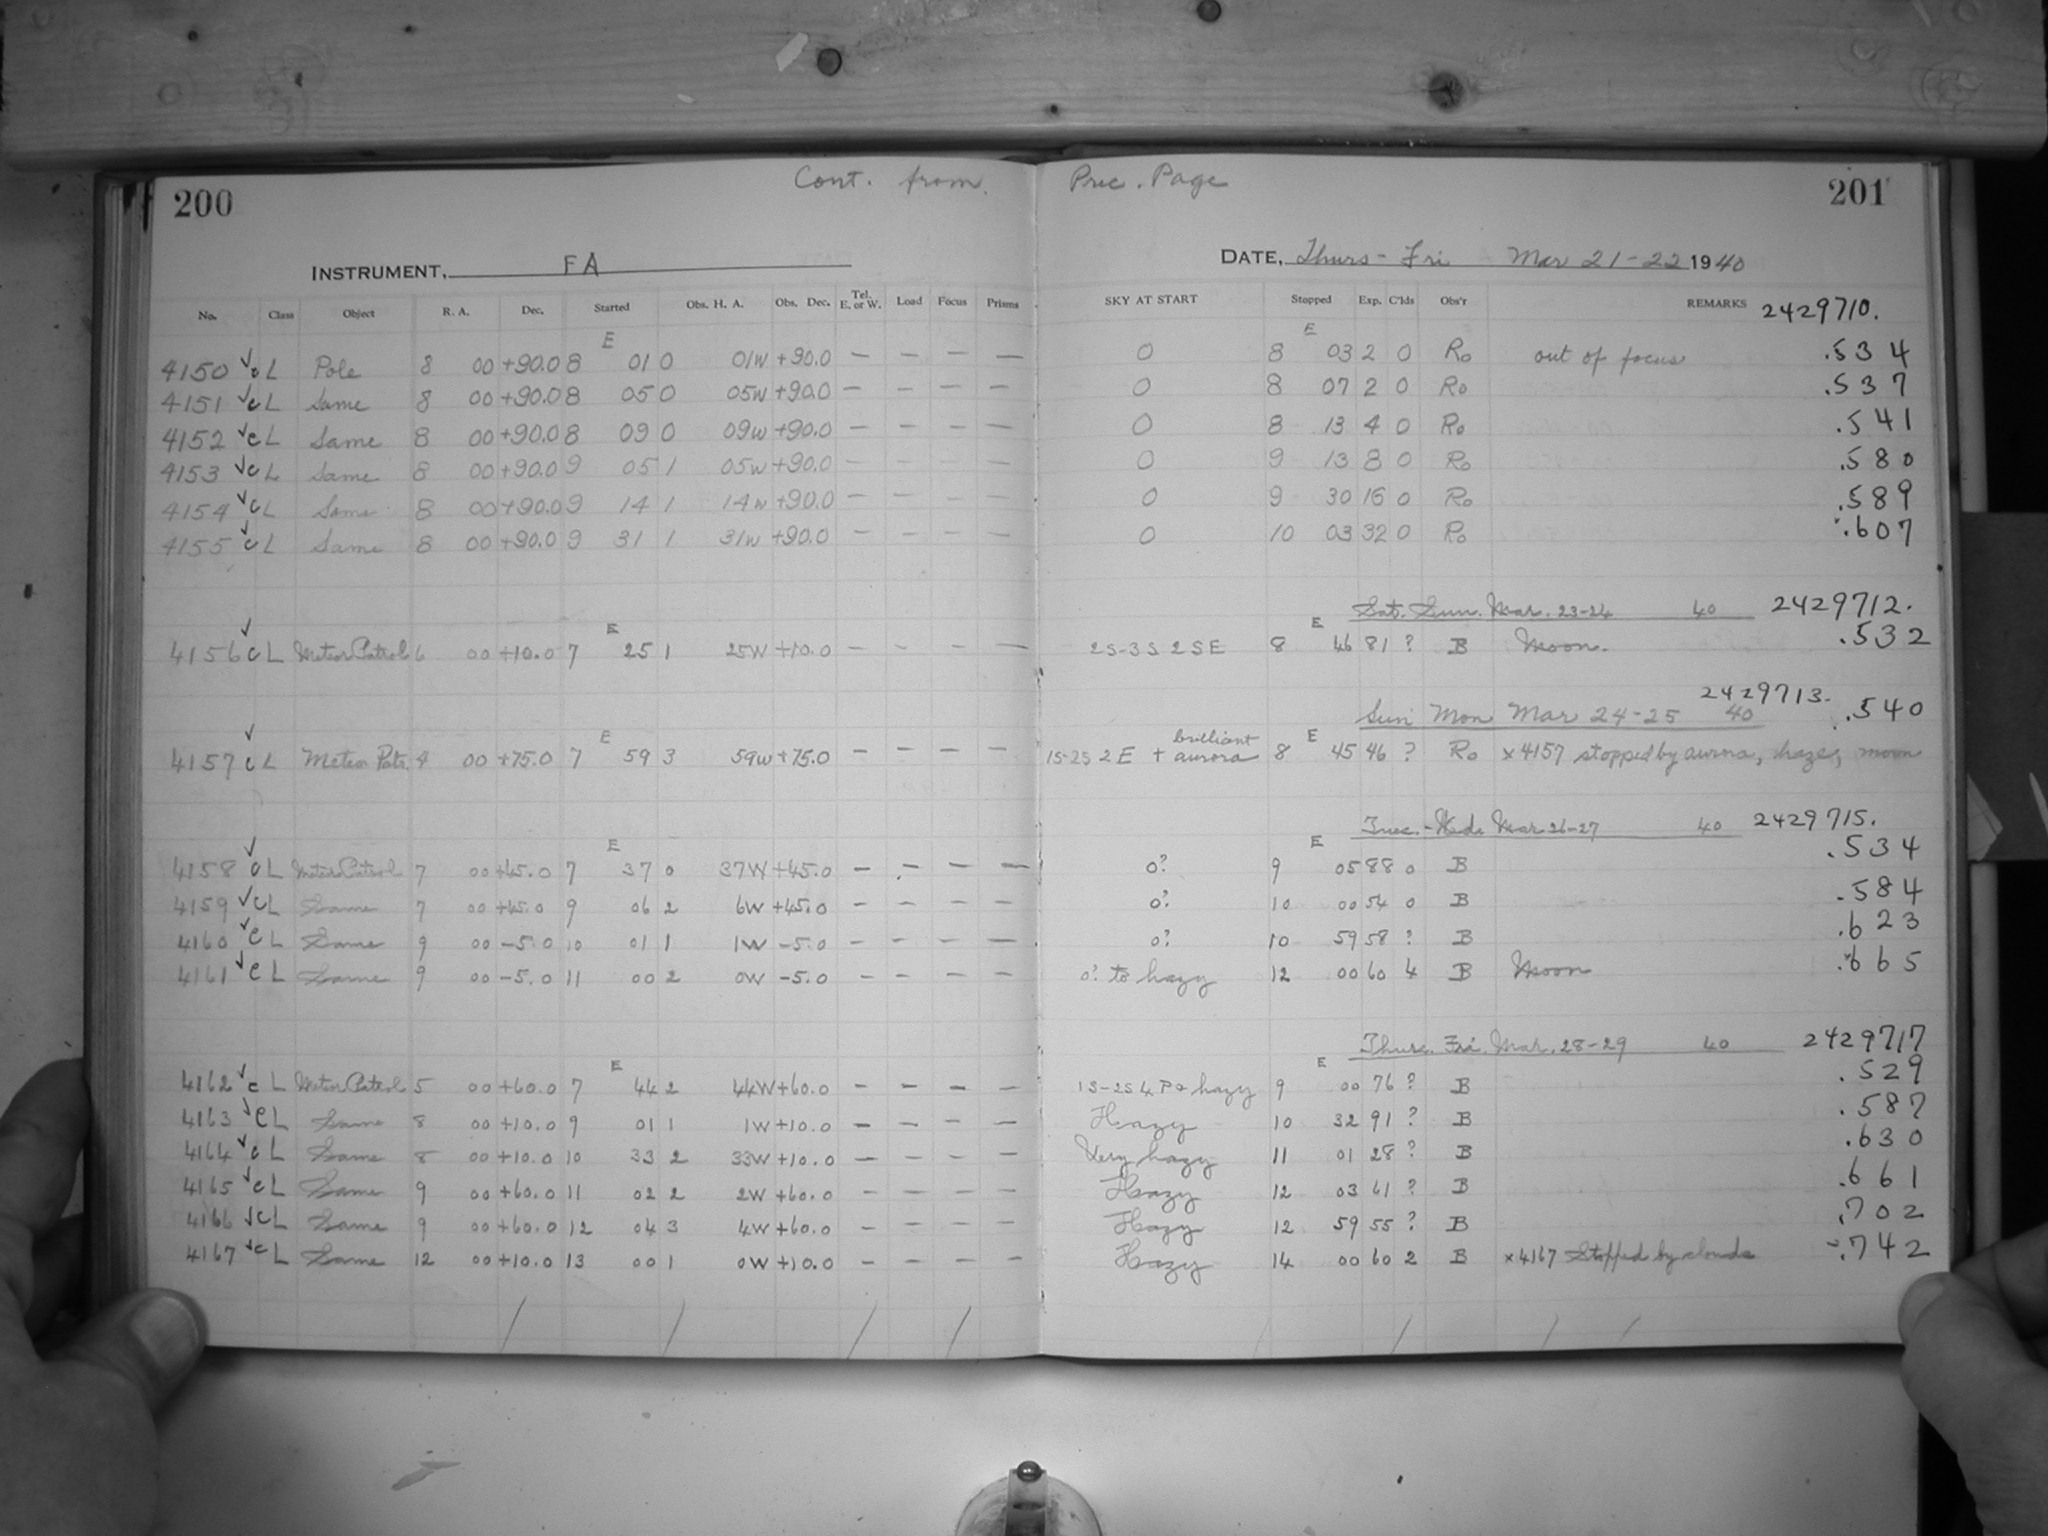 Cont. from Prec. Page
200 201
INSTRUMENT, FA DATE, Thurs - Fri Mar 21-22 1940
No. Class Object R. A. Dec. Started Obs. H. A. Obs. Dec. Tel. E. or W. Load Focus Prisms SKY AT START Stopped Exp. C'lds Obs'r REMARKS 2429710.
E E
4150 ✓ c L Pole 8 00 +90.0 8 01 0 01W +90.0 — — — — 0 8 03 2 0 Ro out of focus .534
4151 ✓ c L Same 8 00 +90.0 8 05 0 05W +90.0 — — — — 0 8 07 2 0 Ro .537
4152 ✓ c L Same 8 00 +90.0 8 09 0 09W +90.0 — — — — 0 8 13 4 0 Ro .541
4153 ✓ c L Same 8 00 +90.0 9 05 1 05W +90.0 — — — — 0 9 13 8 0 Ro .580
4154 ✓ c L Same 8 00 +90.0 9 14 1 14W +90.0 — — — — 0 9 30 16 0 Ro .589
4155 ✓ c L Same 8 00 +90.0 9 31 1 31W +90.0 — — — — 0 10 03 32 0 Ro .607
Sat. Sun. Mar. 23-24 40 2429712.
E E
4156 ✓ c L Meteor Patrol 6 00 +10.0 7 25 1 25W +10.0 — — — — 2S-3S 2SE 8 46 81 ? B Moon. .532
2429713.
Sun Mon Mar 24-25 40 .540
E E
4157 ✓ c L Meteor Patr. 4 00 +75.0 7 59 3 59W +75.0 — — — — 1S-2S 2E + brilliant aurora 8 45 46 ? Ro ×4157 stopped by aurora, haze, moon
Tues. - Wed. Mar 26-27 40 2429715.
E E
4158 ✓ c L Meteor Patrol 7 00 +45.0 7 37 0 37W +45.0 — — — — 0? 9 05 88 0 B .534
4159 ✓ c L Same 7 00 +45.0 9 06 2 6W +45.0 — — — — 0? 10 00 54 0 B .584
4160 ✓ c L Same 9 00 -5.0 10 01 1 1W -5.0 — — — — 0? 10 59 58 ? B .623
4161 ✓ c L Same 9 00 -5.0 11 00 2 0W -5.0 — — — — 0? to hazy 12 00 60 4 B Moon .665
Thurs. Fri. Mar. 28-29 40 2429717
E E
4162 ✓ c L Meteor Patrol 5 00 +60.0 7 44 2 44W +60.0 — — — — 1S-2S 4P+ hazy 9 00 76 ? B .529
4163 ✓ c L Same 8 00 +10.0 9 01 1 1W +10.0 — — — — Hazy 10 32 91 ? B .587
4164 ✓ c L Same 8 00 +10.0 10 33 2 33W +10.0 — — — — Very hazy 11 01 28 ? B .630
4165 ✓ c L Same 9 00 +60.0 11 02 2 2W +60.0 — — — — Hazy 12 03 61 ? B .661
4166 ✓ c L Same 9 00 +60.0 12 04 3 4W +60.0 — — — — Hazy 12 59 55 ? B .702
4167 ✓ c L Same 12 00 +10.0 13 00 1 0W +10.0 — — — — Hazy 14 00 60 2 B ×4167 Stopped by clouds .742